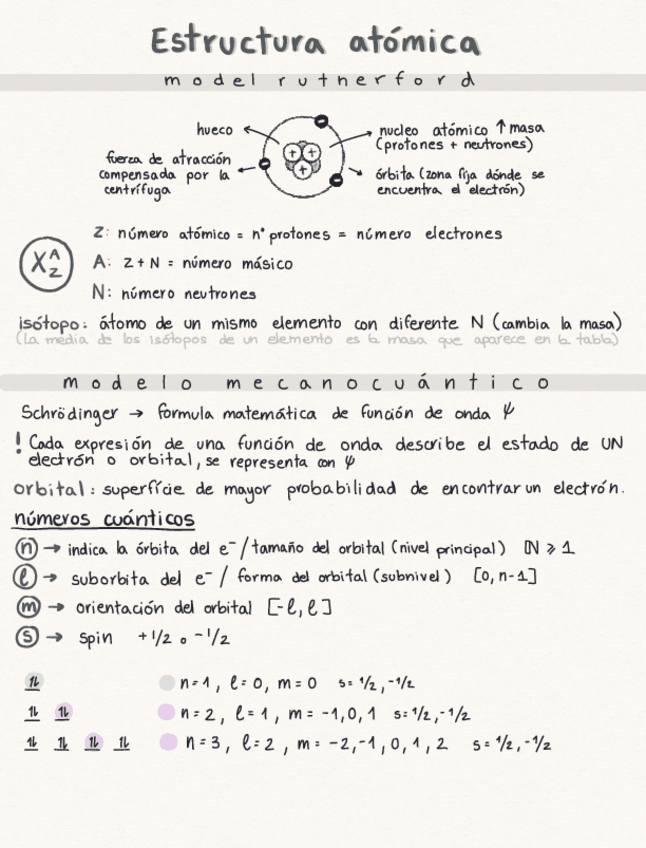 Estructura atómica
model rutherford
hueco
nucleo atómico ↑ masa
(protones + neutrones)
fuerza de atracción
compensada por la
centrífuga
órbita (zona fija dónde se
encuentra el electrón)
Z: número atómico = nº protones = número electrones
X A Z
A: Z + N = número másico
N: número neutrones
isótopo: átomo de un mismo elemento con diferente N (cambia la masa)
(La media de los isótopos de un elemento es la masa que aparece en la tabla)
modelo mecanocuántico
Schrödinger → formula matemática de función de onda Ψ
! Cada expresión de una función de onda describe el estado de UN
electrón o orbital, se representa con Ψ
orbital: superfície de mayor probabilidad de encontrar un electrón.
números cuánticos
n → indica la órbita del e⁻ / tamaño del orbital (nivel principal) ℕ ≥ 1
ℓ → suborbita del e⁻ / forma del orbital (subnivel) [0, n-1]
m → orientación del orbital [-ℓ, ℓ]
s → spin +1/2 o -1/2
⥮ n=1, ℓ=0, m=0 s= 1/2, -1/2
⥮ ⥮ n=2, ℓ=1, m= -1,0,1 s=1/2, -1/2
⥮ ⥮ ⥮ ⥮ n=3, ℓ=2, m= -2,-1,0,1,2 s=1/2, -1/2